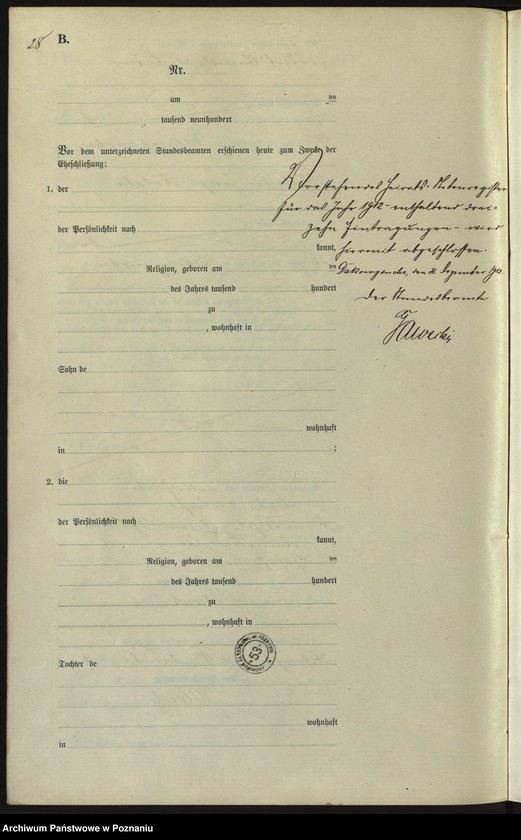 28 B.
Nr.
am ten
tausend neunhundert
Vor dem unterzeichneten Standesbeamten erschienen heute zum Zwecke der
Eheschließung:
1. der
der Persönlichkeit nach
kannt,
Religion, geboren am ten
des Jahres tausend hundert
zu
, wohnhaft in
Sohn de
wohnhaft
in ;
2. die
der Persönlichkeit nach
kannt,
Religion, geboren am ten
des Jahres tausend hundert
zu
, wohnhaft in
Tochter de
wohnhaft
in
Vorstehendes Heirats-Nebenregister
für das Jahr 1912 enthaltend drei-
zehn Eintragungen wird
hiermit abgeschlossen.
den 31. Dezember 1912.
Der Standesbeamte
53
Archiwum Państwowe w Poznaniu